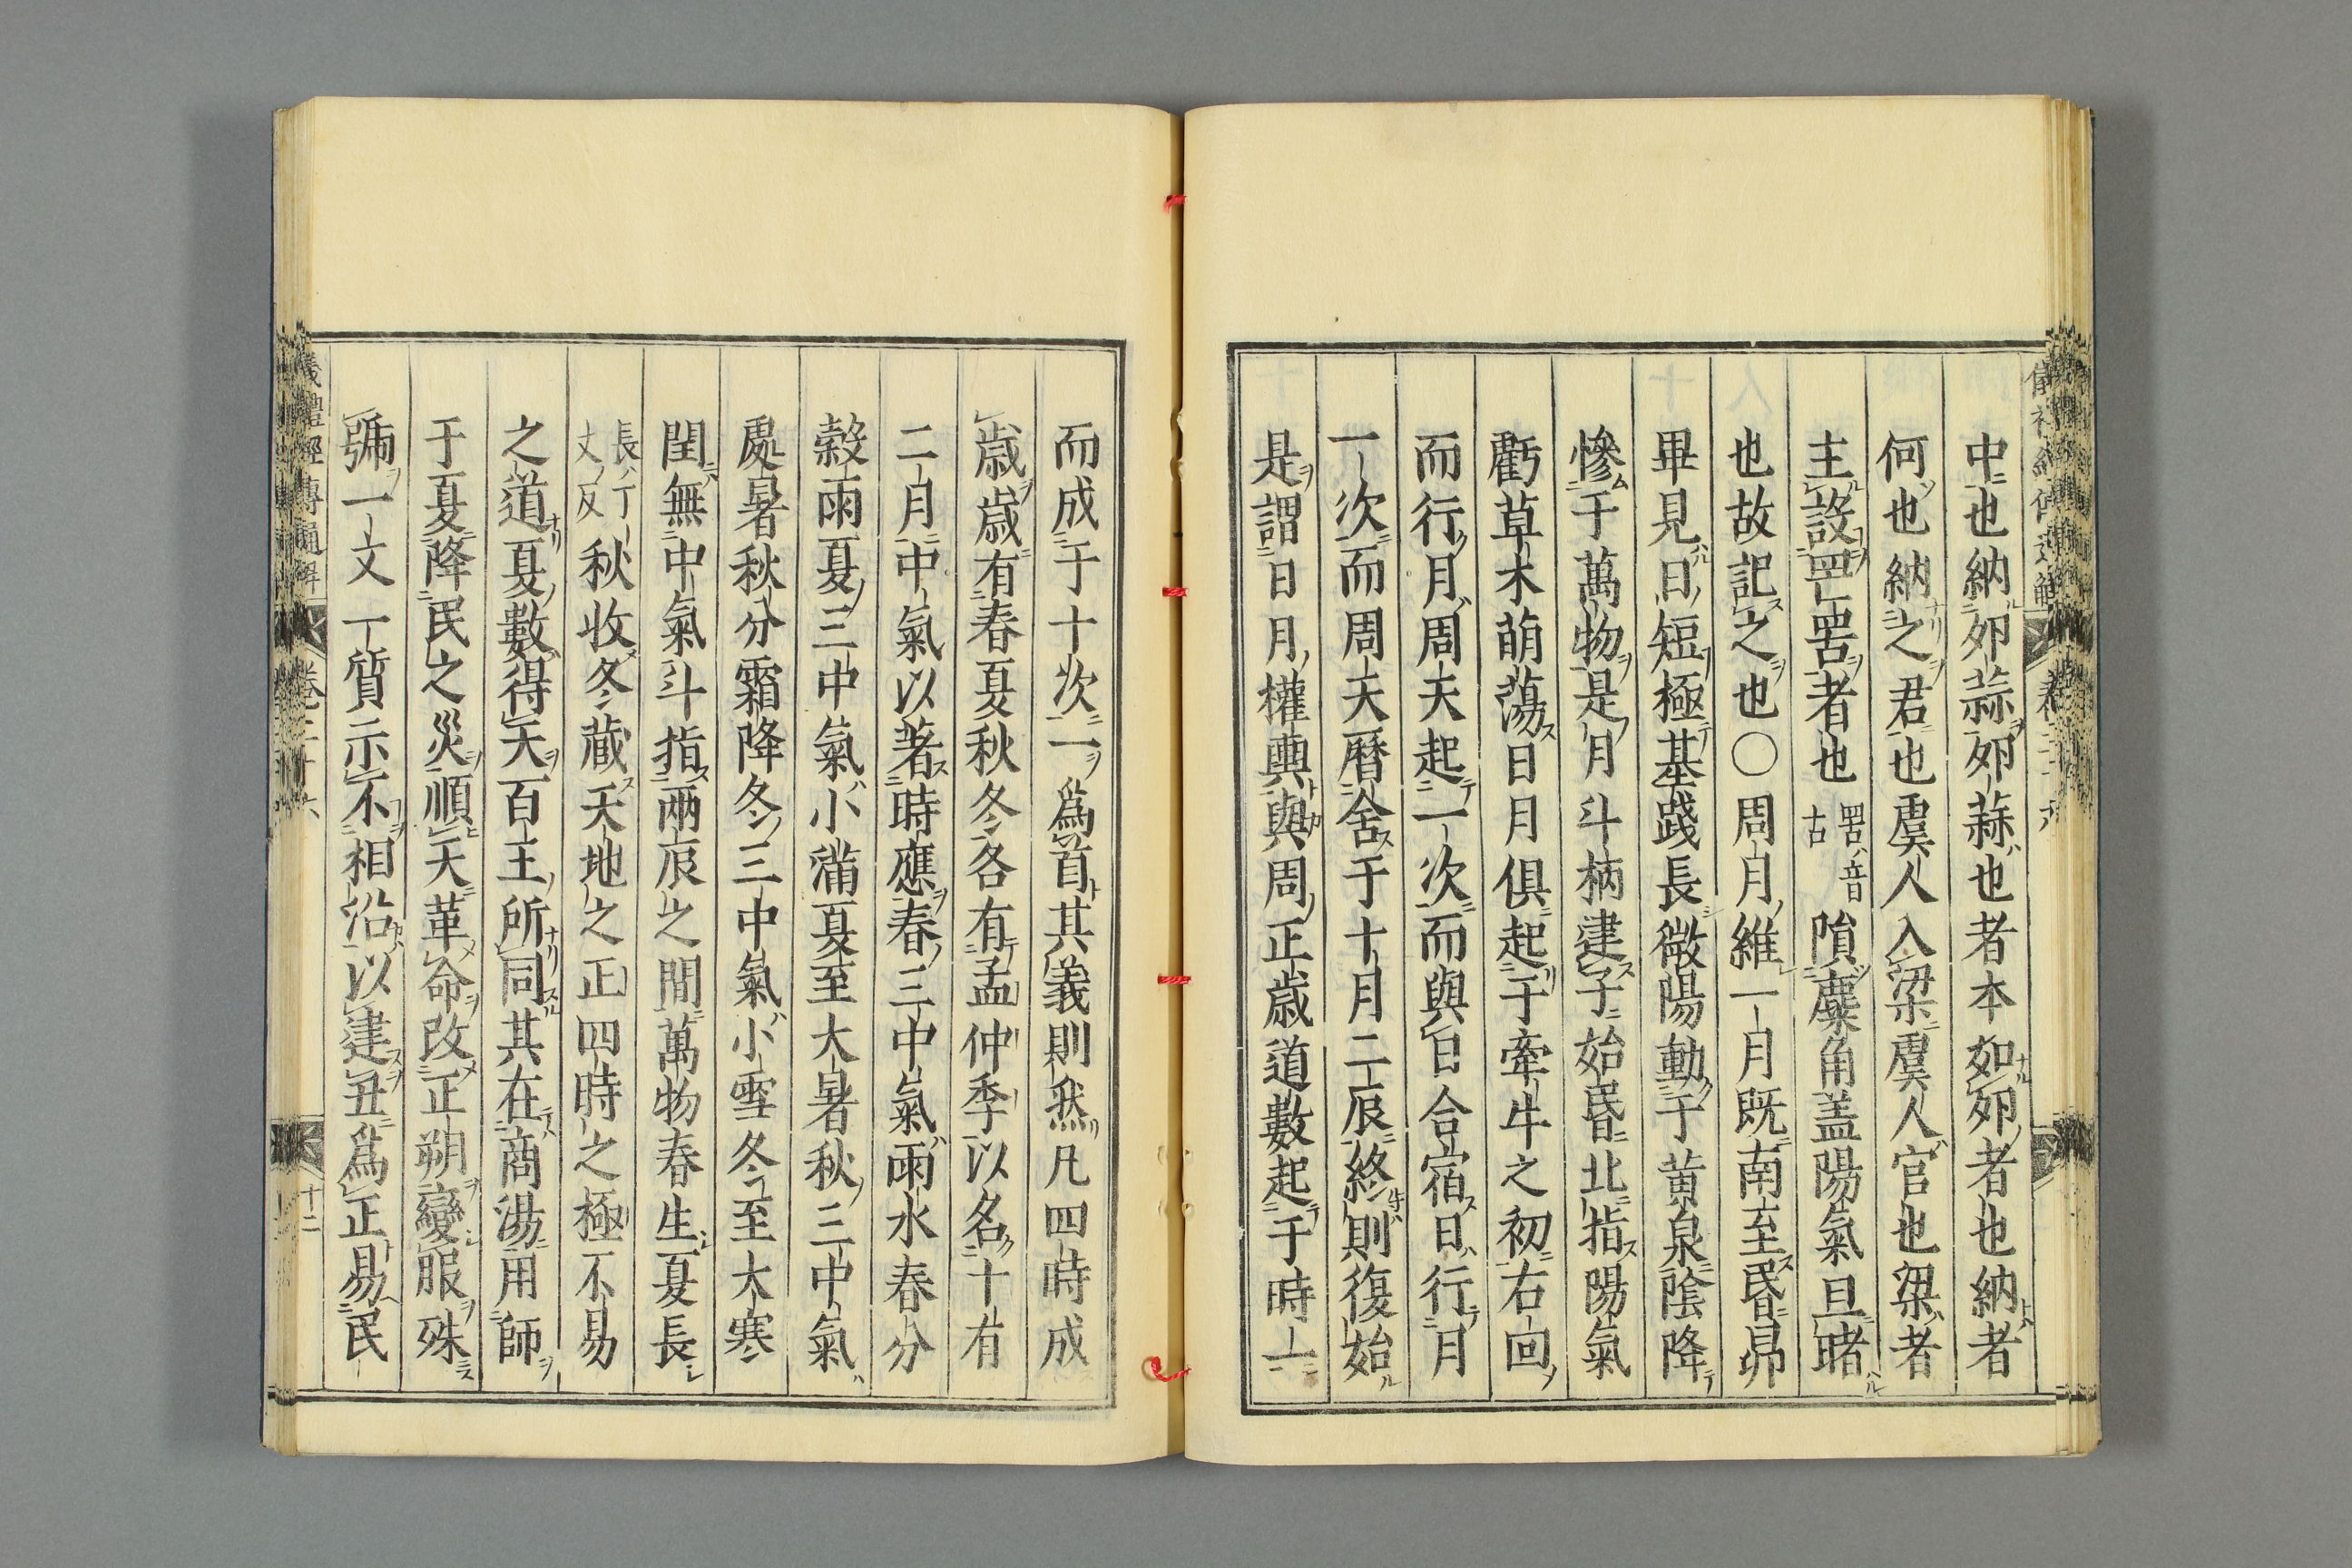 中也納夘蒜夘蒜也者本如夘者也納者
何也納之君也虞人入梁虞人官也梁者
主設罟罟者也罟音古隕麋角盖陽氣旦睹
也故記之也○周月維一月既南至昏昴
畢見日短極基踐長微陽動于黄泉陰降
慘于萬物是月斗柄建子始昏北指陽氣
虧草木萌蕩日月俱起于牽牛之初右回
而行月周天起一次而與日合宿日行月
一次而周天曆舍于十月二辰終則復始
是謂日月權輿與周正歳道數起于時一
而成于十次一爲首其義則然凡四時成
歳歳有春夏秋冬各有孟仲季以名十有
二月中氣以著時應春三中氣雨水春分
穀雨夏三中氣小滿夏至大暑秋三中氣
處暑秋分霜降冬三中氣小雪冬至大寒
閏無中氣斗指兩辰之間萬物春生夏長
長丁丈反秋收冬藏天地之正四時之極不易
之道夏數得天百王所同其在商湯用師
于夏降民之災順天革命改正朔變服殊
號一文一質示不相沿以建丑爲正易民
儀禮經傳通解 卷二十六 十二